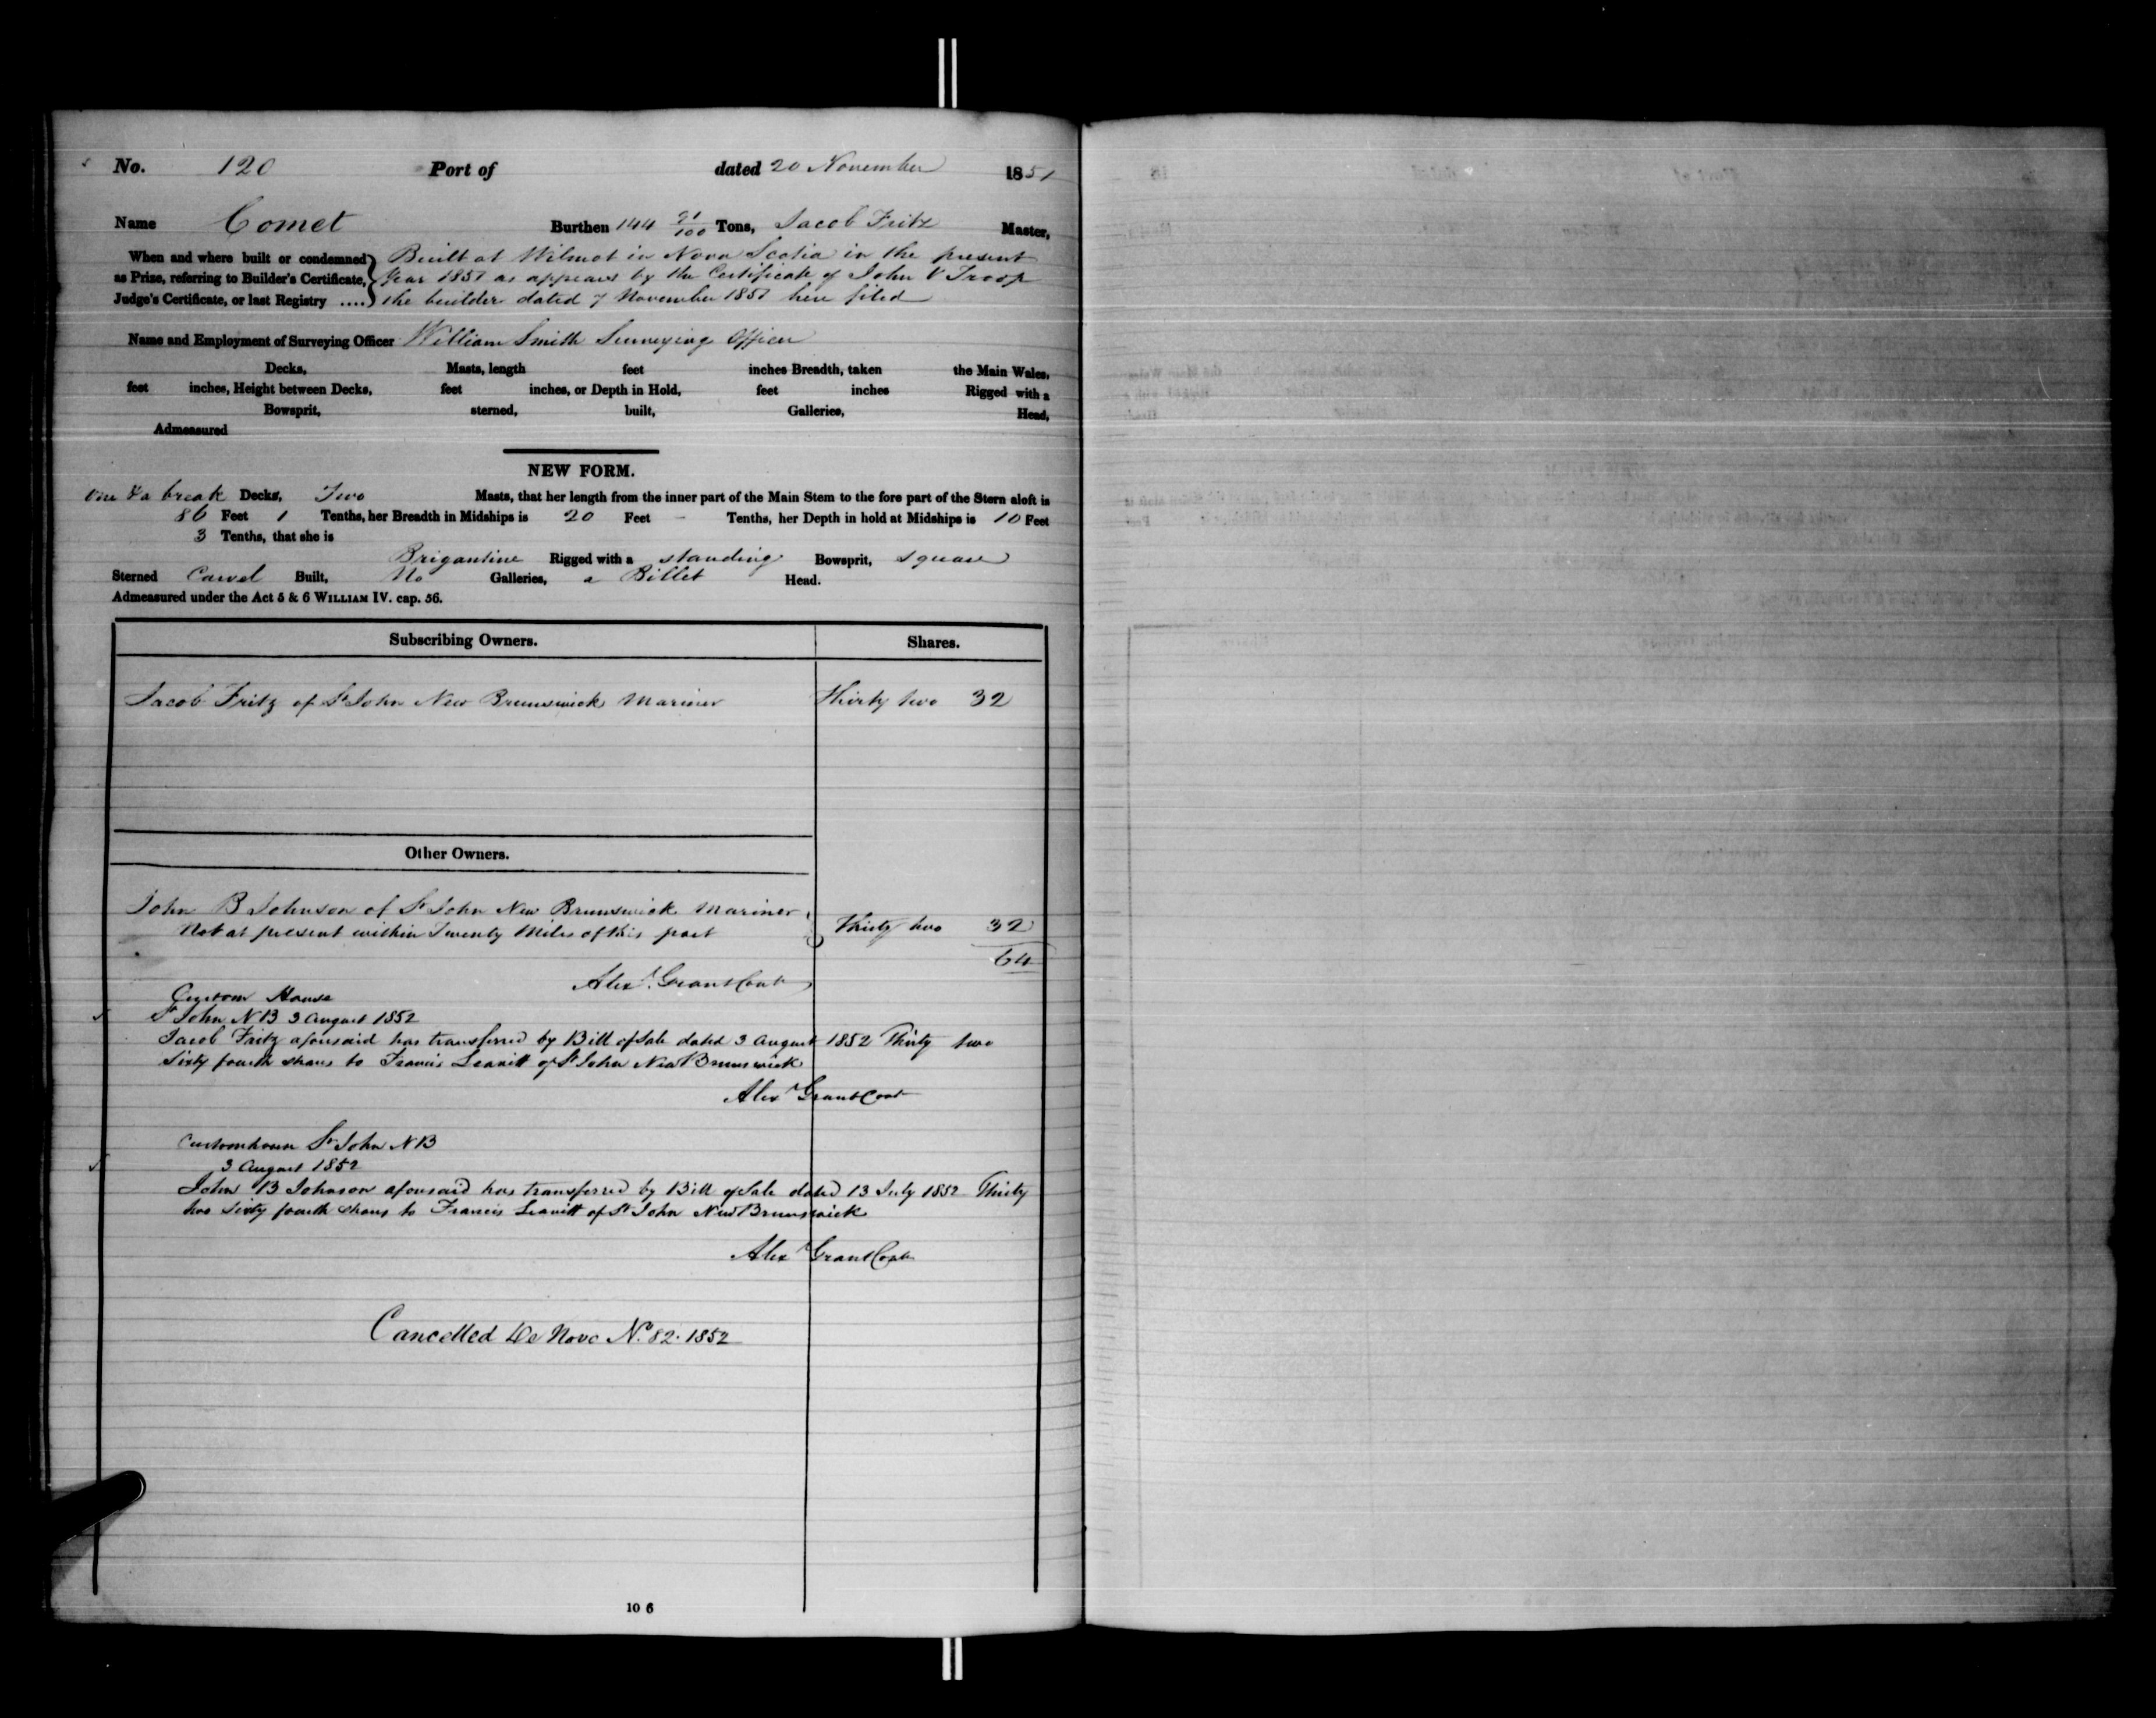 No. 120 Port of dated 20 November 1851
Name Comet Burthen 144 91/100 Tons, Jacob Fritz Master,
When and where built or condemned as Prize, referring to Builder's Certificate, Judge's Certificate, or last Registry .... } Built at Wilmot in Nova Scotia in the present
Year 1851 as appears by the Certificate of John V Troop
the builder dated 7 November 1851 here filed
Name and Employment of Surveying Officer William Smith Surveying Officer
Decks, Masts, length feet inches Breadth, taken the Main Wales,
feet inches, Height between Decks, feet inches, or Depth in Hold, feet inches Rigged with a
Bowsprit, sterned, built, Galleries, Head,
Admeasured
NEW FORM.
One & a break Decks, Two Masts, that her length from the inner part of the Main Stem to the fore part of the Stern aloft is
86 Feet 1 Tenths, her Breadth in Midships is 20 Feet - Tenths, her Depth in hold at Midships is 10 Feet
3 Tenths, that she is
Brigantine Rigged with a standing Bowsprit, square
Sterned Carvel Built, No Galleries, a Billet Head.
Admeasured under the Act 5 & 6 WILLIAM IV. cap. 56.
Subscribing Owners. Shares.
Jacob Fritz of St John New Brunswick Mariner Thirty two 32
Other Owners.
John B Johnson of St John New Brunswick Mariner
Not at present within Twenty Miles of this port } Thirty two 32
64
Alexr Grant Cont
Custom House
St John N B 3 August 1852
Jacob Fritz aforesaid has transferred by Bill of Sale dated 3 August 1852 Thirty two
Sixty fourth shares to Francis Leavitt of St John New Brunswick
Alexr Grant Cont
Customhouse St John N B
3 August 1852
John B Johnson aforesaid has transferred by Bill of Sale dated 13 July 1852 Thirty
two sixty fourth shares to Francis Leavitt of St John New Brunswick
Alexr Grant Cont
Cancelled De Novo No. 82. 1852
10 6